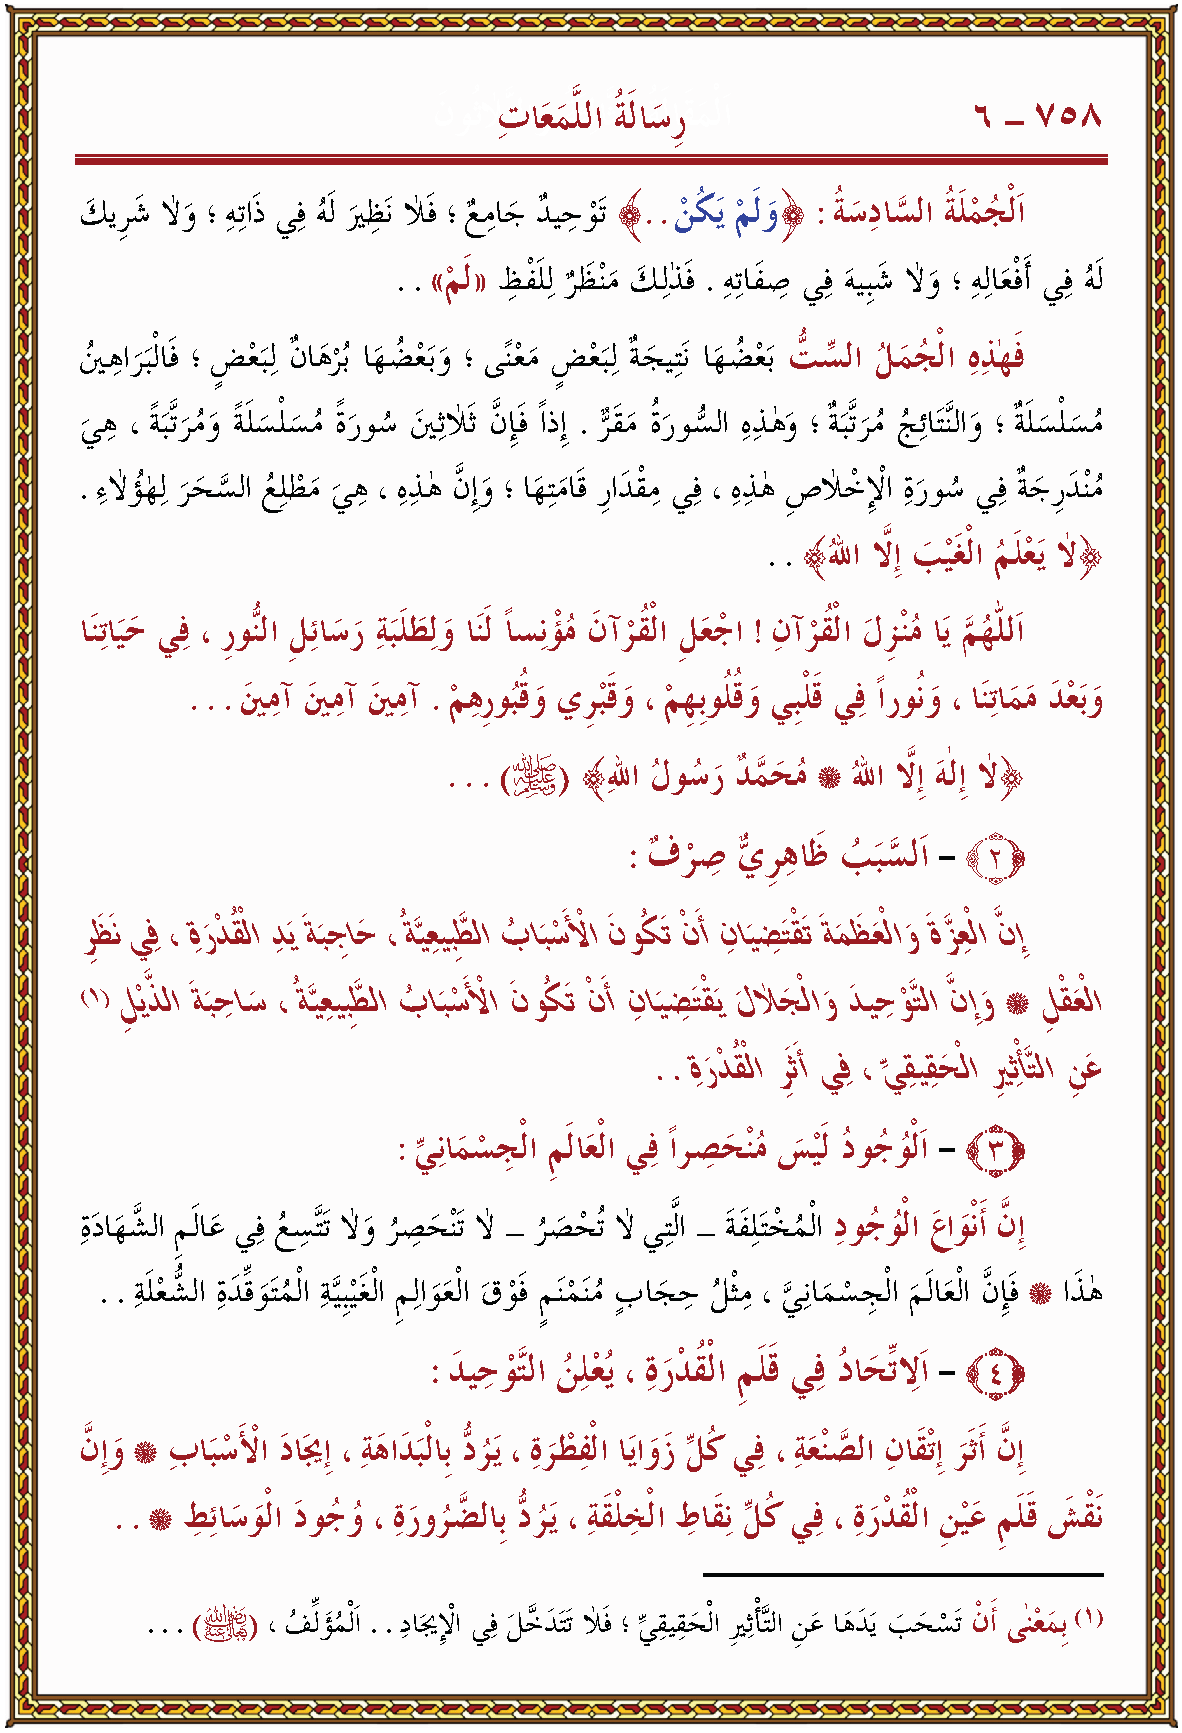 ٧٥٨ ـ ٦ رِسَالَةُ اللَّمَعَاتِ
اَلْجُمْلَةُ السَّادِسَةُ : ﴿وَلَمْ يَكُنْ . . ﴾ تَوْحِيدٌ جَامِعٌ ؛ فَلاَ نَظِيرَ لَهُ فِي ذَاتِهِ ؛ وَلاَ شَرِيكَ
لَهُ فِي أَفْعَالِهِ ؛ وَلاَ شَبِيهَ فِي صِفَاتِهِ . فَذٰلِكَ مَنْظَرٌ لِلَفْظِ «لَمْ» . .
فَهٰذِهِ الْجُمَلُ السِّتُّ بَعْضُهَا نَتِيجَةٌ لِبَعْضٍ مَعْنًى ؛ وَبَعْضُهَا بُرْهَانٌ لِبَعْضٍ ؛ فَالْبَرَاهِينُ
مُسَلْسَلَةٌ ؛ وَالنَّتَائِجُ مُرَتَّبَةٌ ؛ وَهٰذِهِ السُّورَةُ مَقَرٌّ . إِذاً فَإِنَّ ثَلاَثِينَ سُورَةً مُسَلْسَلَةً وَمُرَتَّبَةً ، هِيَ
مُنْدَرِجَةٌ فِي سُورَةِ الْإِخْلاَصِ هٰذِهِ ، فِي مِقْدَارِ قَامَتِهَا ؛ وَإِنَّ هٰذِهِ ، هِيَ مَطْلِعُ السَّحَرَ لِهٰؤُلاَءِ .
﴿لاَ يَعْلَمُ الْغَيْبَ إِلَّا اللهُ﴾ . .
اَللّٰهُمَّ يَا مُنْزِلَ الْقُرْآنِ ! اجْعَلِ الْقُرْآنَ مُؤْنِساً لَنَا وَلِطَلَبَةِ رَسَائِلِ النُّورِ ، فِي حَيَاتِنَا
وَبَعْدَ مَمَاتِنَا ، وَنُوراً فِي قَلْبِي وَقُلُوبِهِمْ ، وَقَبْرِي وَقُبُورِهِمْ . آمِينَ آمِينَ آمِينَ . . .
﴿لاَ إِلٰهَ إِلَّا اللهُ * مُحَمَّدٌ رَسُولُ اللهِ﴾ (ﷺ) . . .
﴿٢﴾ – اَلسَّبَبُ ظَاهِرِيٌّ صِرْفٌ :
إِنَّ الْعِزَّةَ وَالْعَظَمَةَ تَقْتَضِيَانِ أَنْ تَكُونَ الْأَسْبَابُ الطَّبِيعِيَّةُ ، حَاجِبَةَ يَدِ الْقُدْرَةِ ، فِي نَظَرِ
الْعَقْلِ * وَإِنَّ التَّوْحِيدَ وَالْجَلاَلَ يَقْتَضِيَانِ أَنْ تَكُونَ الْأَسْبَابُ الطَّبِيعِيَّةُ ، سَاحِبَةَ الذَّيْلِ (١)
عَنِ التَّأْثِيرِ الْحَقِيقِيِّ ، فِي أَثَرِ الْقُدْرَةِ . .
﴿٣﴾ – اَلْوُجُودُ لَيْسَ مُنْحَصِراً فِي الْعَالَمِ الْجِسْمَانِيِّ :
إِنَّ أَنْوَاعَ الْوُجُودِ الْمُخْتَلِفَةَ – الَّتِي لاَ تُحْصَرُ – لاَ تَنْحَصِرُ وَلاَ تَتَّسِعُ فِي عَالَمِ الشَّهَادَةِ
هٰذَا * فَإِنَّ الْعَالَمَ الْجِسْمَانِيَّ ، مِثْلُ حِجَابٍ مُنَمْنَمٍ فَوْقَ الْعَوَالِمِ الْغَيْبِيَّةِ الْمُتَوَقِّدَةِ الشُّعْلَةِ . .
﴿٤﴾ – اَلِاتِّحَادُ فِي قَلَمِ الْقُدْرَةِ ، يُعْلِنُ التَّوْحِيدَ :
إِنَّ أَثَرَ إِتْقَانِ الصَّنْعَةِ ، فِي كُلِّ زَوَايَا الْفِطْرَةِ ، يَرُدُّ بِالْبَدَاهَةِ ، إِيجَادَ الْأَسْبَابِ * وَإِنَّ
نَقْشَ قَلَمِ عَيْنِ الْقُدْرَةِ ، فِي كُلِّ نِقَاطِ الْخِلْقَةِ ، يَرُدُّ بِالضَّرُورَةِ ، وُجُودَ الْوَسَائِطِ * . .
(١) بِمَعْنٰى أَنْ تَسْحَبَ يَدَهَا عَنِ التَّأْثِيرِ الْحَقِيقِيِّ ؛ فَلاَ تَتَدَخَّلَ فِي الْإِيجَادِ . . اَلْمُؤَلِّفُ ، (رَضِيَ اللهُ تَعَالَى عَنْهُ) . . .